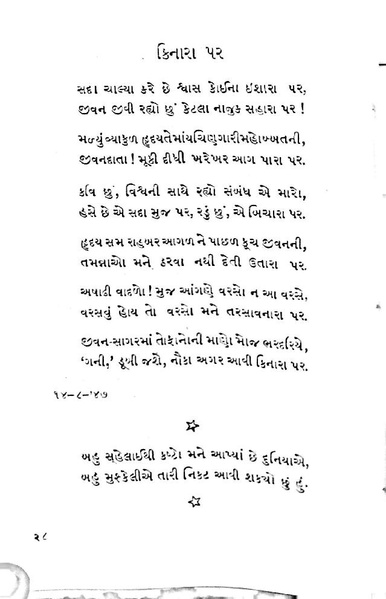 કિનારા પર
સદા ચાલ્યા કરે છે શ્વાસ કોઈના ઇશારા પર,
જીવન જીવી રહ્યો છું કેટલા નાજુક સહારા પર !
મળ્યું વ્યાકુળ હૃદય તેમાંય ચિણગારી મહોબ્બતની,
જીવનદાતા ! મૂકી દીધી ખરેખર આગ પારા પર.
કવિ છું, વિશ્વની સાથે રહ્યો સંબંધ એ મારો,
હસે છે એ સદા મુજ પર, રડું છું, એ બિચારા પર.
હૃદય સમ રાહબર આગળ ને પાછળ કૂચ જીવનની,
તમન્નાઓ મને ઠરવા નથી દેતી ઉતારા પર.
અષાઢી વાદળો ! મુજ આંગણે વરસો ન આ વરસે,
વરસવું હોય તો વરસો મને તરસાવનારા પર.
જીવન-સાગરમાં તોફાનોની માણો મોજ ભરદરિયે,
‘ગની,’ ડૂબી જશે, નૌકા અગર આવી કિનારા પર.
૧૪-૮-’૪૭
બહુ સહેલાઈથી કષ્ટો મને આપ્યાં છે દુનિયાએ,
બહુ મુશ્કેલીએ તારી નિકટ આવી શક્યો છું હું.
૨૮